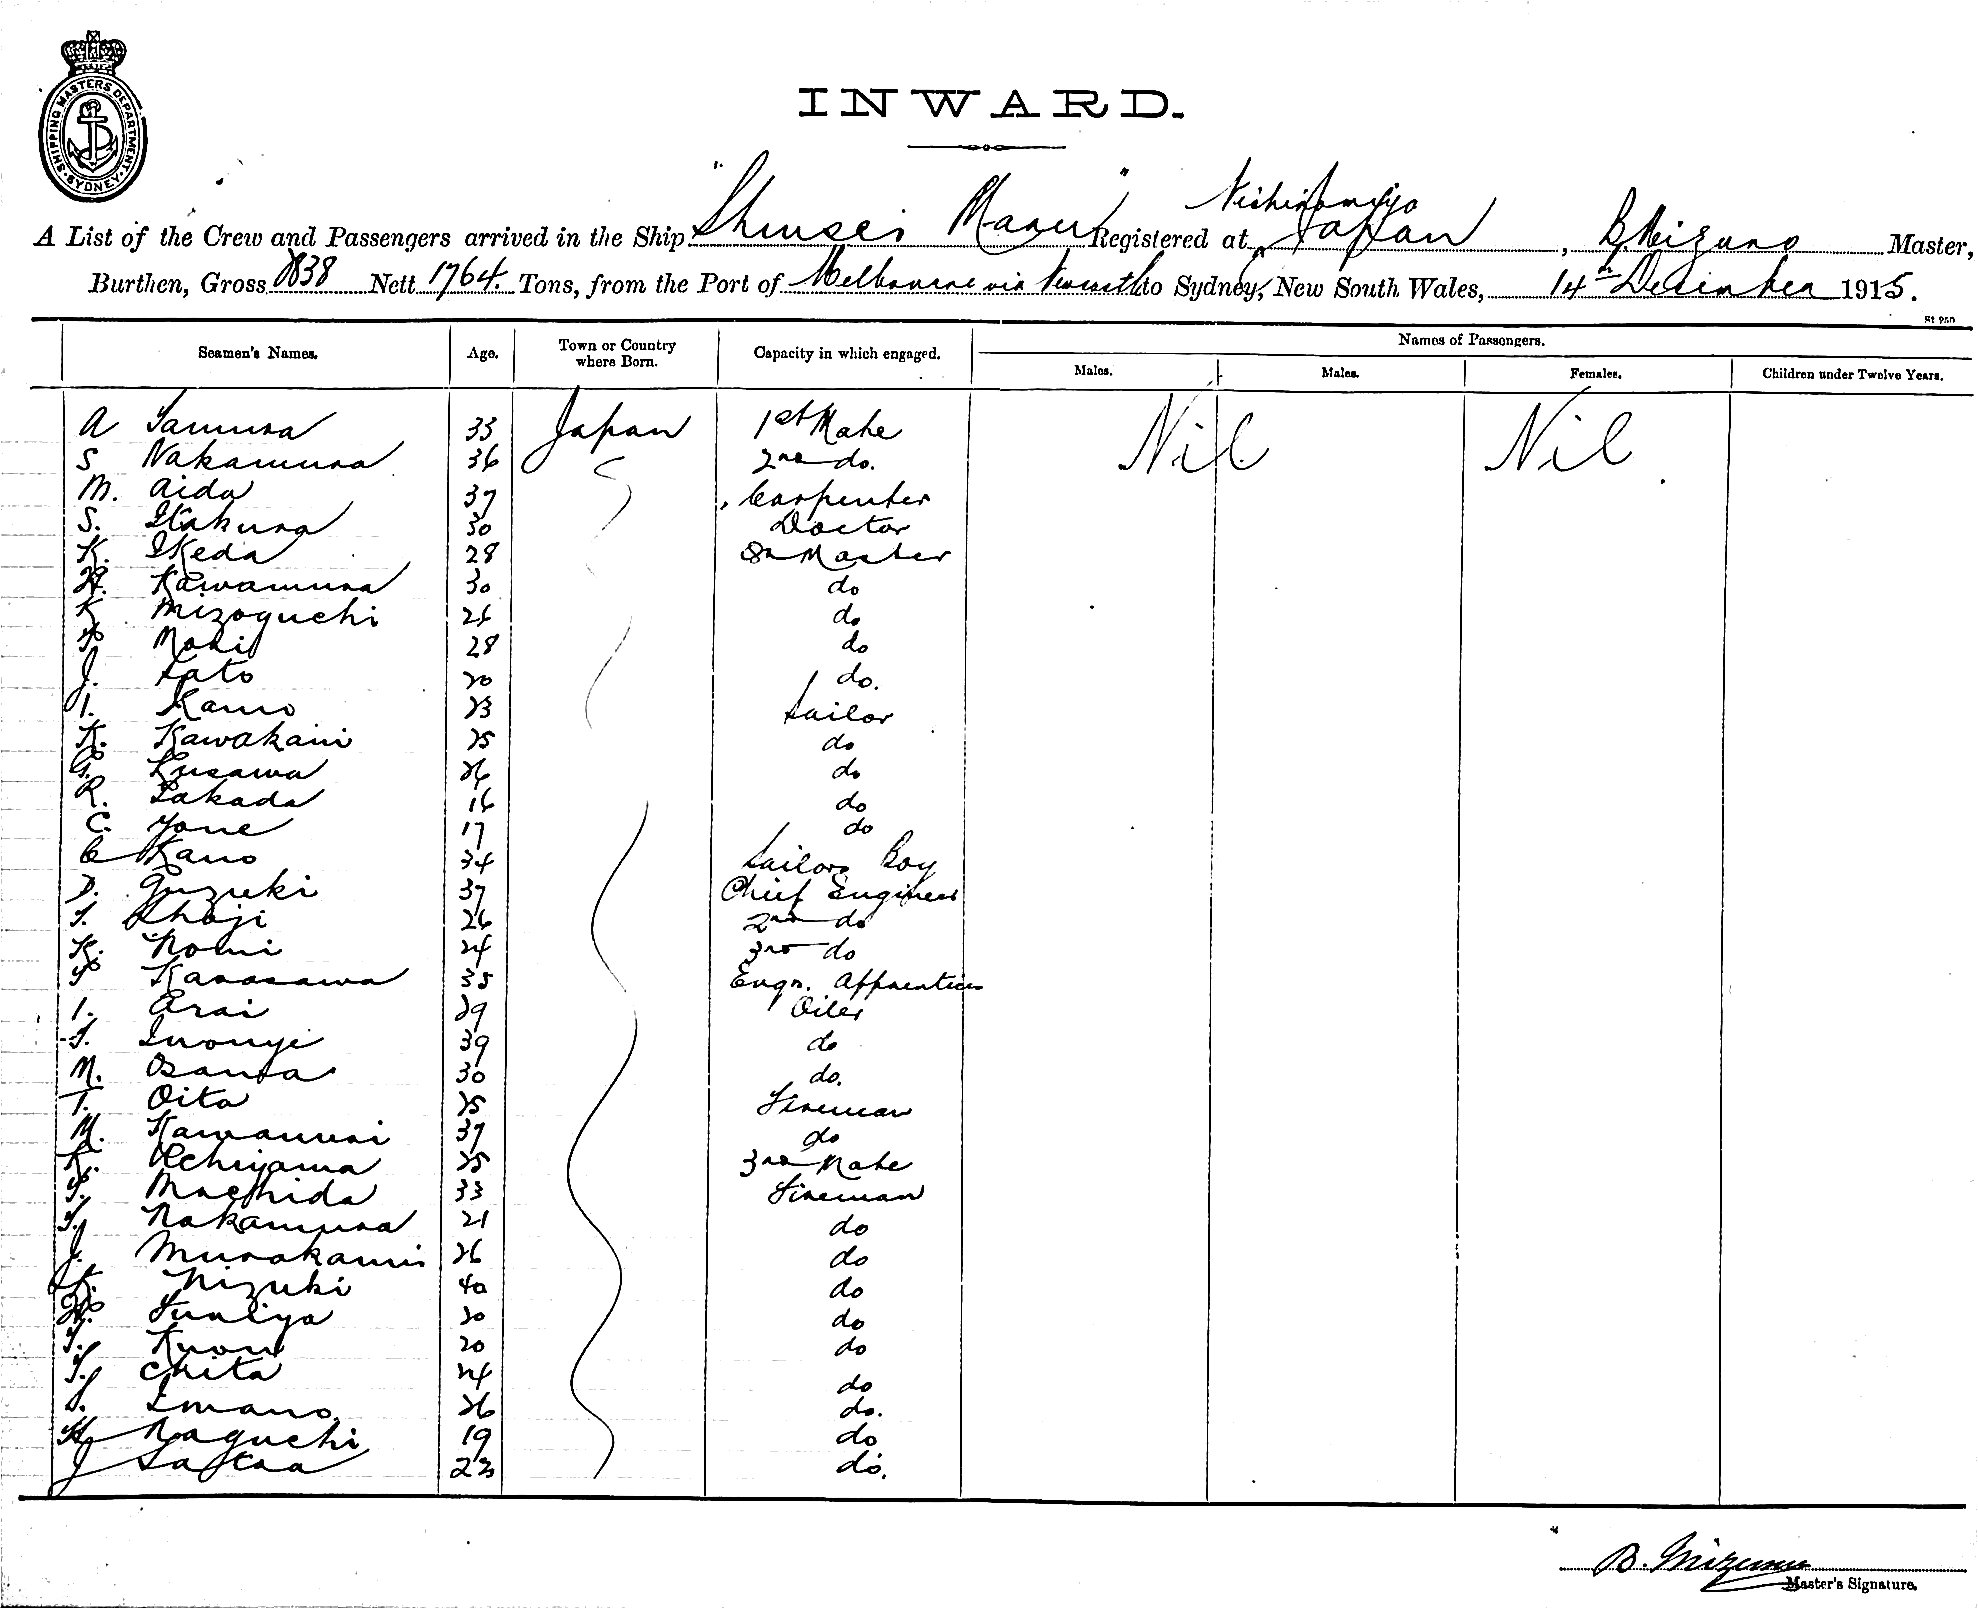 SHIPPING MASTERS DEPARTMENT. SYDNEY.
INWARD.
A List of the Crew and Passengers arrived in the Ship "Shinsei Maru" Registered at Nishinomiya Japan, B. Mizuno Master,
Burthen, Gross Nett 1764. Tons, from the Port of Melbourne via to Sydney, New South Wales, 14th December 1915.
St 250
Seamen's Names. Age. Town or Country where Born. Capacity in which engaged. Names of Passengers.
Males. Males. Females. Children under Twelve Years.
A Tamura 33 Japan 1st Mate Nil Nil
S Nakamura 36 2nd do.
M. Aida 37 Carpenter
S. Itakura 30 Doctor
K. Ikeda 28 Qr Master
H. Kawamura 30 do
K Mizoguchi 26 do
Mori 28 do
J. Sato 20 do.
I. Kamo 23 Sailor
K. Kawakami 25 do
G. Kusawa 26 do
R. Takada 16 do
C. Yone 17 do
C Kano 34 Sailors Boy
D. Guzuki 37 Chief Engineer
S. Shoji 26 2nd do
K. Nomi 24 3rd do
Karasawa 35 Engn. Apprentice
I. Arai 29 Oiler
S. Inouye 39 do
M. Osawa 30 do.
T. Oita 25 Fireman
M. 37 do
K. Uchiyama 25 3rd Mate
Machida 33 Fireman
Nakamura 21 do
J. Murakami 26 do
K. Mizuki 40 do
H. 20 do
20 do
Chita 24 do
S. Imano 26 do.
H Naguchi 19 do
J 23 do.
B. Mizuno
Master's Signature.